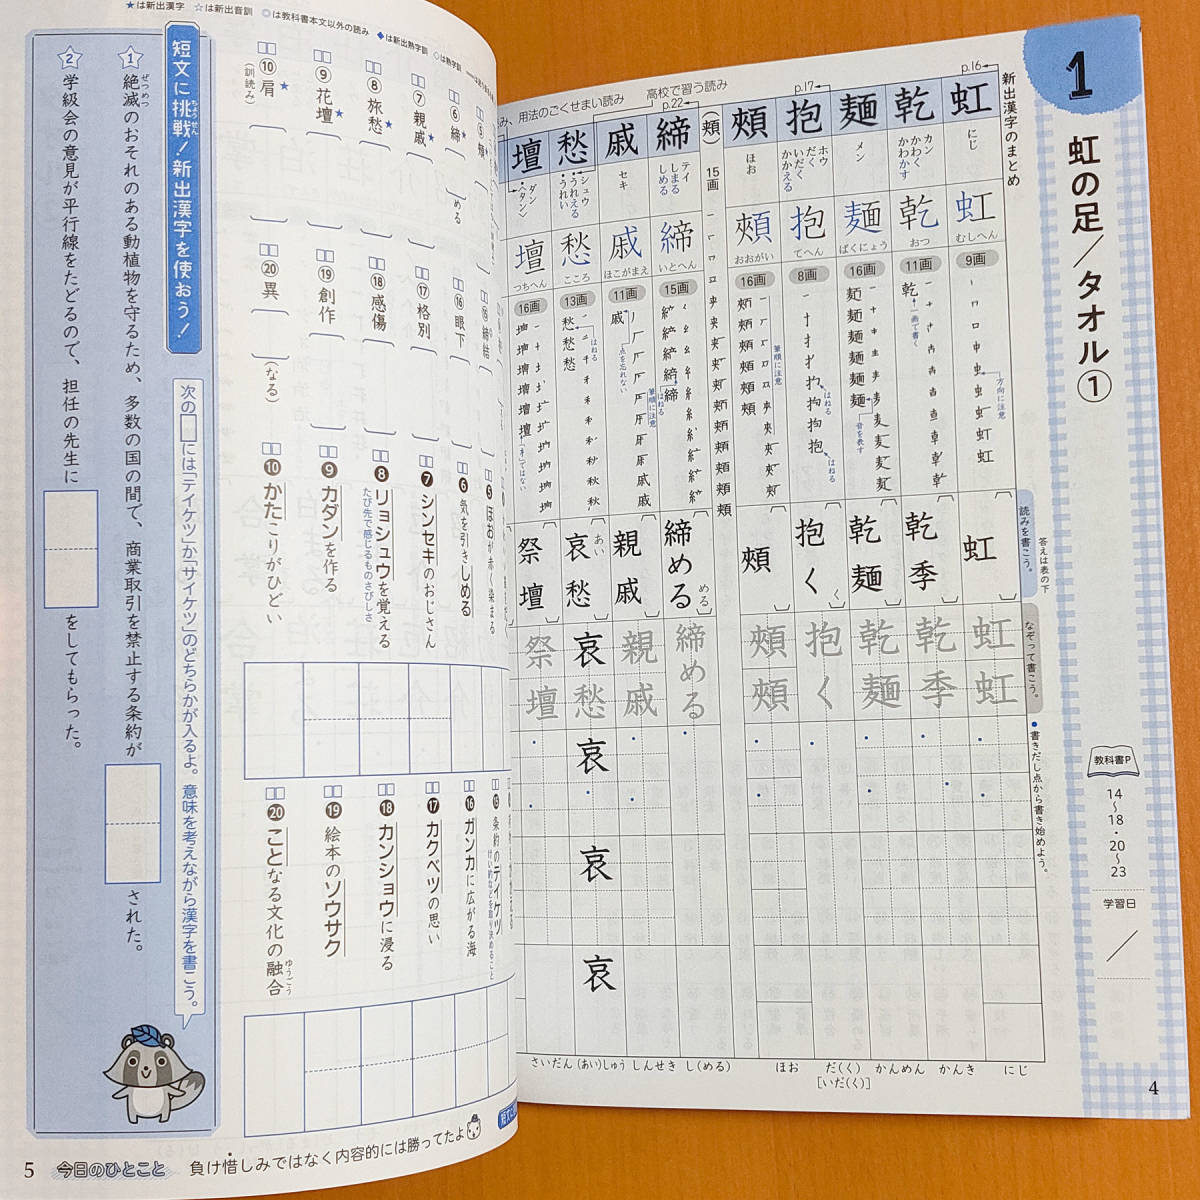 1
虹の足／タオル①
教科書P
14〜18・20〜23
学習日
4
新出漢字のまとめ
読みを書こう。
答えは表の下
なぞって書こう。
書きだし点から書き始めよう。
p.16
虹
にじ
虹
むしへん
9画
方向に注意
虹
虹
虹
にじ
乾
カン
かわく
かわかす
乾
おつ
11画
一画で書く
乾季
乾季
かんき
麺
メン
麺
ばくにょう
16画
音を表す
乾麺
乾麺
かんめん
p.17
抱
ホウ
だく
いだく
かかえる
抱
てへん
8画
はねる
はねる
抱く
抱く
だ(く)
[いだ(く)]
頰
ほお
頰
おおがい
16画
筆順に注意
頰
頰
頰
ほお
高校で習う読み
(頬)
15画
p.22
締
テイ
しまる
しめる
締
いとへん
15画
はねる
締める
める
締める
し(める)
戚
セキ
戚
ほこがまえ
11画
点を忘れない
筆順に注意
親戚
親戚
しんせき
愁
シュウ
うれえる
うれい
愁
こころ
13画
はねる
哀愁
あい
哀愁
哀
哀
哀
(あい)しゅう
壇
ダン
(タン)
壇
つちへん
16画
祭壇
祭壇
さいだん
み、用法のごくせまい読み
★は新出漢字 ☆は新出音訓 ◎は教科書本文以外の読み ◆は新出熟字訓 ◇は熟字訓
⑥ 締 める
⑦ 親戚
⑧ 旅愁
⑨ 花壇
⑩ 肩
(訓読み)
⑮ 締結
⑯ 眼下
⑰ 格別
⑱ 感傷
⑲ 創作
⑳ 異 (なる)
❺ ほおが赤く染まる
❻ 気を引きしめる
❼ シンセキのおじさん
❽ リョシュウを覚える
たび先で感じるものさびしさ
❾ カダンを作る
❿ かたこりがひどい
⓯ 条約のテイケツ
けい約などを取り決めること
⓰ ガンカに広がる海
⓱ カクベツの思い
⓲ カンショウに浸る
⓳ 絵本のソウサク
⓴ ことなる文化の融合
ゆうごう
短文に挑戦！新出漢字を使おう！
ちょうせん
次の□には「テイケツ」か「サイケツ」のどちらかが入るよ。意味を考えながら漢字を書こう。
1 絶滅のおそれのある動植物を守るため、多数の国の間で、商業取引を禁止する条約が
ぜつめつ
された。
2 学級会の意見が平行線をたどるので、担任の先生に
をしてもらった。
5 今日のひとこと 負け惜しみではなく内容的には勝ってたよ